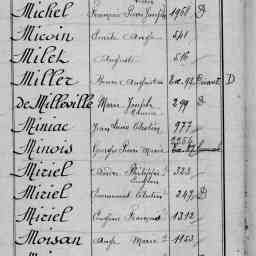 Michel François Pierre Joseph 1968 D
Micoin Emile Ange 541
Milet Auguste 516
Miller Henri Augustin Exc. 92 D
de Milloville Marie Joseph 299 D
Miniac Jean Louis Célestin 977
Minois Pierre Marie
Miriel Philippe 323
Miriel Emmanuel Célestin 247 D
Miriel Eugène François 1312
Moisan Ange Marie 1153